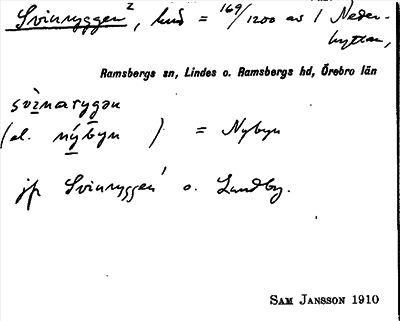 Svinryggen², hmd = 169/1200 av 1 Neder-
hyttan,
Ramsbergs sn, Lindes o. Ramsbergs hd, Örebro län
svinarygən
(el. nýbyn ) = Nybyn
jfr Svinryggen¹ o. Lundby.
SAM JANSSON 1910